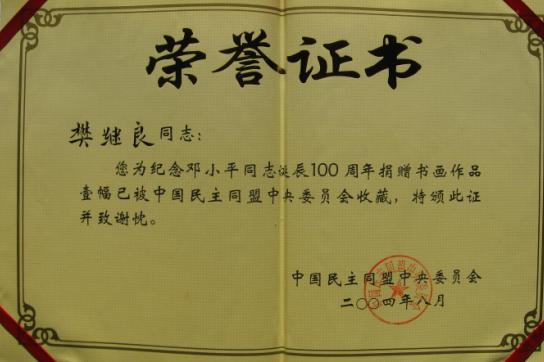 荣誉证书
樊继良同志：
您为纪念邓小平同志诞辰100周年捐赠书画作品
壹幅已被中国民主同盟中央委员会收藏，特颁此证
并致谢忱。
中国民主同盟中央委员会
二〇〇四年八月